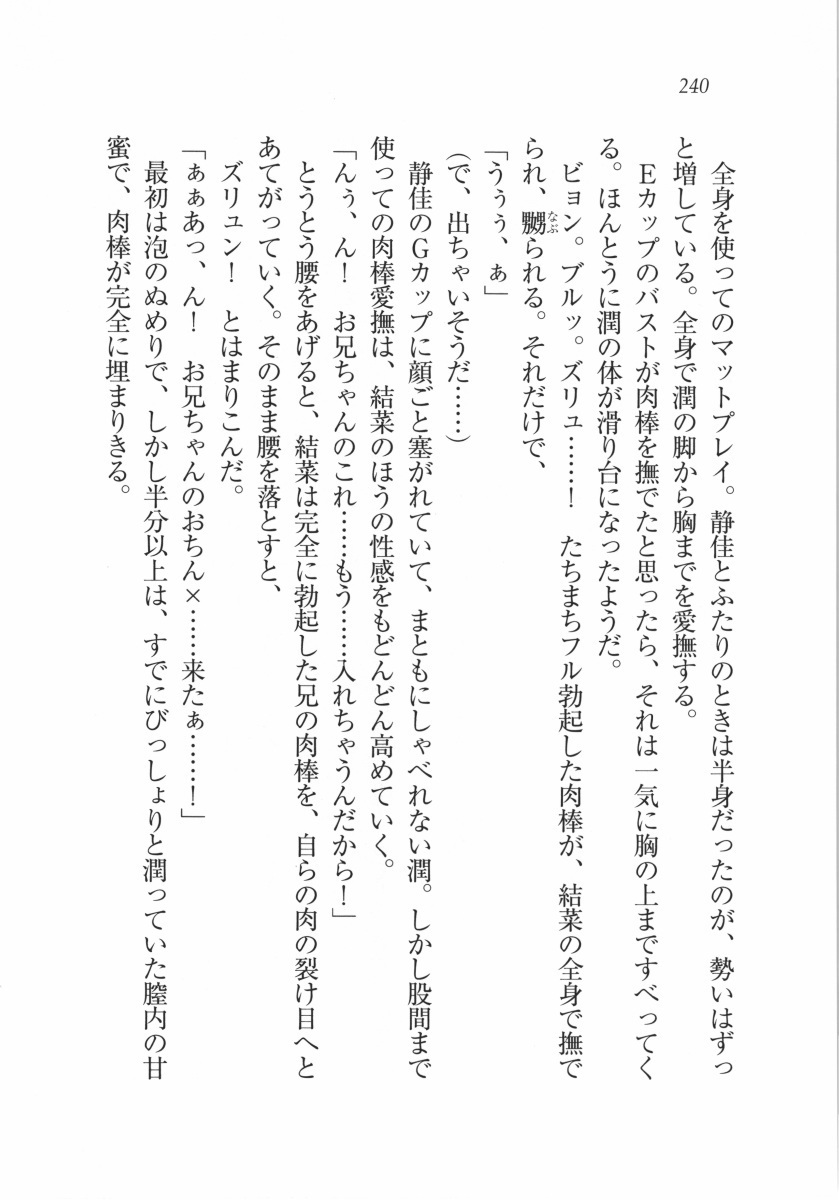 240
全身を使ってのマットプレイ。静佳とふたりのときは半身だったのが、勢いはずっ
と増している。全身で潤の脚から胸までを愛撫する。
Eカップのバストが肉棒を撫でたと思ったら、それは一気に胸の上まですべってく
る。ほんとうに潤の体が滑り台になったようだ。
ビョン。ブルッ。ズリュ……！　たちまちフル勃起した肉棒が、結菜の全身で撫で
られ、嬲られる。それだけで、
なぶ
「うぅぅ、ぁ」
(で、出ちゃいそうだ……)
静佳のGカップに顔ごと塞がれていて、まともにしゃべれない潤。しかし股間まで
使っての肉棒愛撫は、結菜のほうの性感をもどんどん高めていく。
「んぅ、ん！　お兄ちゃんのこれ……もう……入れちゃうんだから！」
とうとう腰をあげると、結菜は完全に勃起した兄の肉棒を、自らの肉の裂け目へと
あてがっていく。そのまま腰を落とすと、
ズリュン！　とはまりこんだ。
「ぁぁあっ、ん！　お兄ちゃんのおちん×……来たぁ……！」
最初は泡のぬめりで、しかし半分以上は、すでにびっしょりと潤っていた膣内の甘
蜜で、肉棒が完全に埋まりきる。